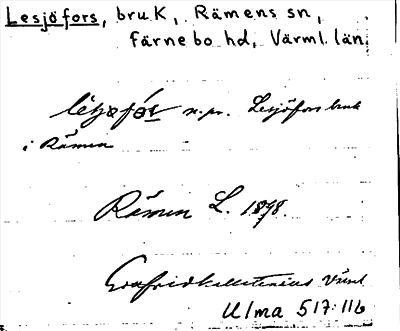 Lesjöfors, bruk, Rämens sn,
Färnebo hd, Värml. län
n. pr. Lesjöfors bruk
i Rämen
Rämen L. 1898.
Värml
Ulma 517:116